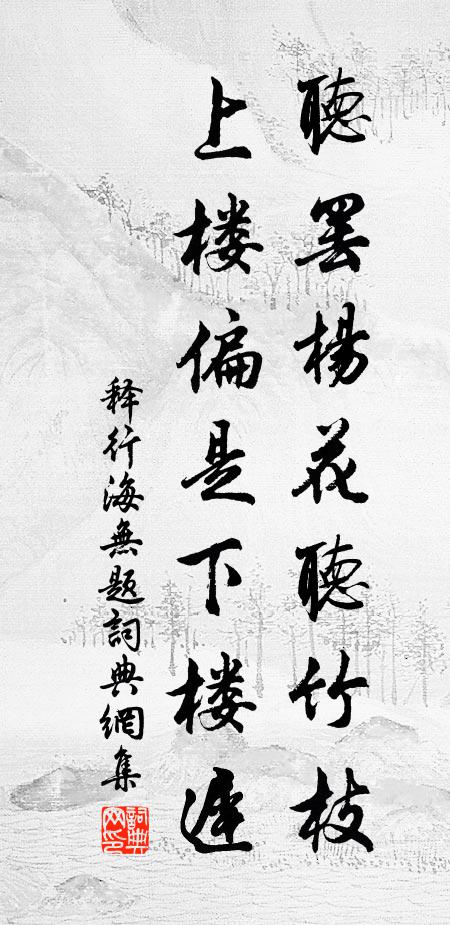 聽罢楊花聽竹枝
上楼偏是下楼遅
释行海無题詞典網集
詞典网印